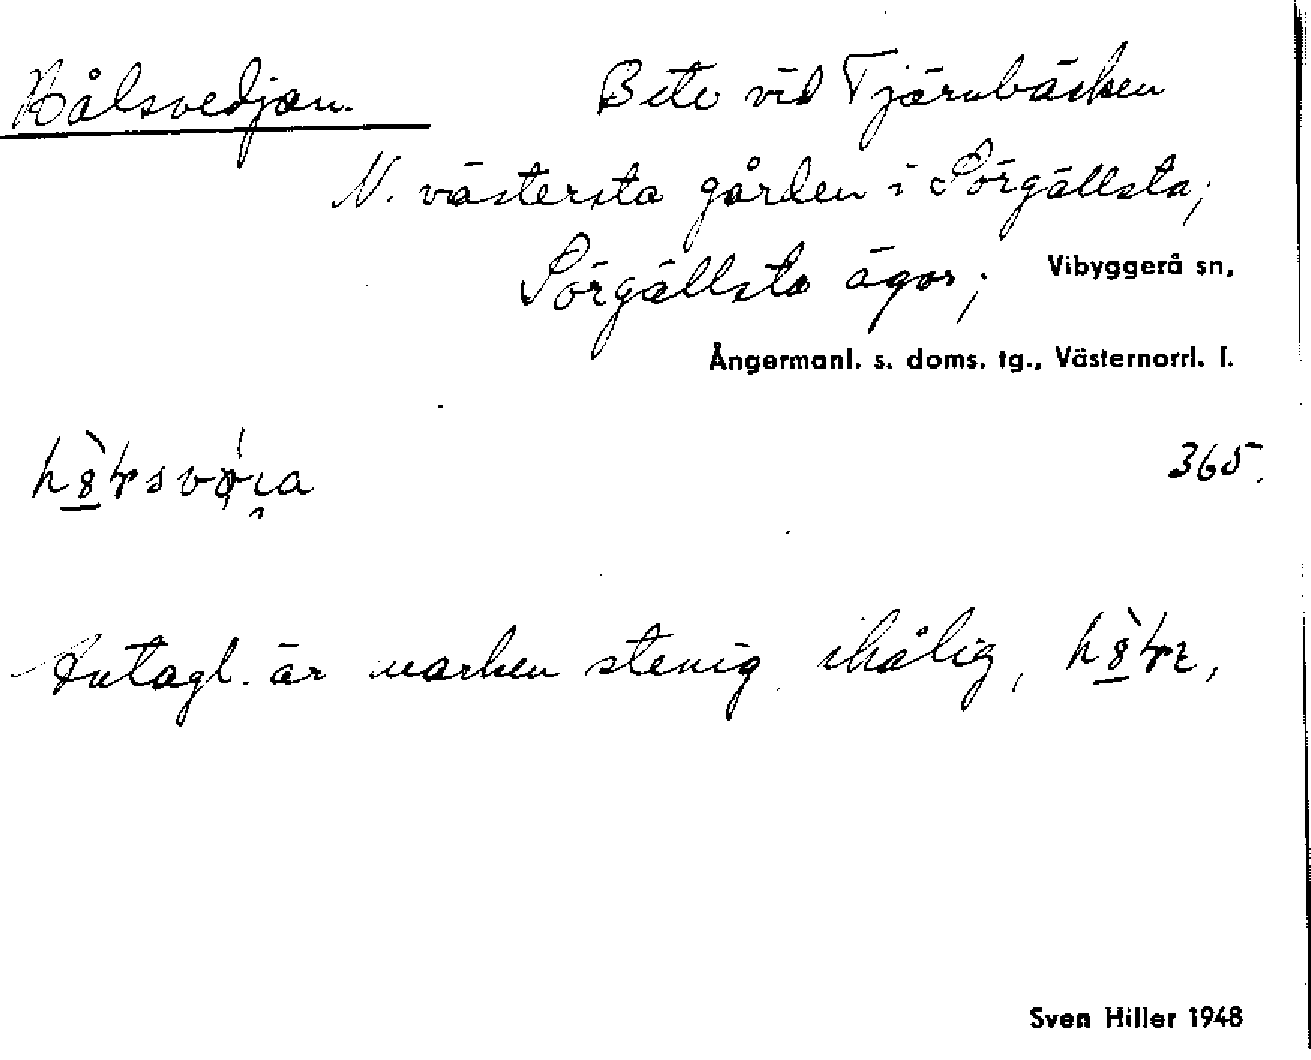 Hålsvedjan. Bete vid Tjärnbäcken
N. västersta gården i Sörgällsta,
Sörgällsta ägor; Vibyggerå sn,
Ångermanl. s. doms. tg., Västernorrl. l.
365.
Antagl. är marken stenig ihålig,
Sven Hiller 1948